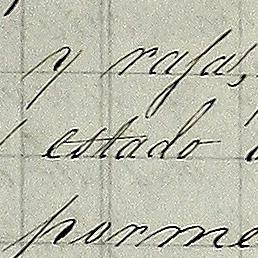 y rafas,
estado
porme